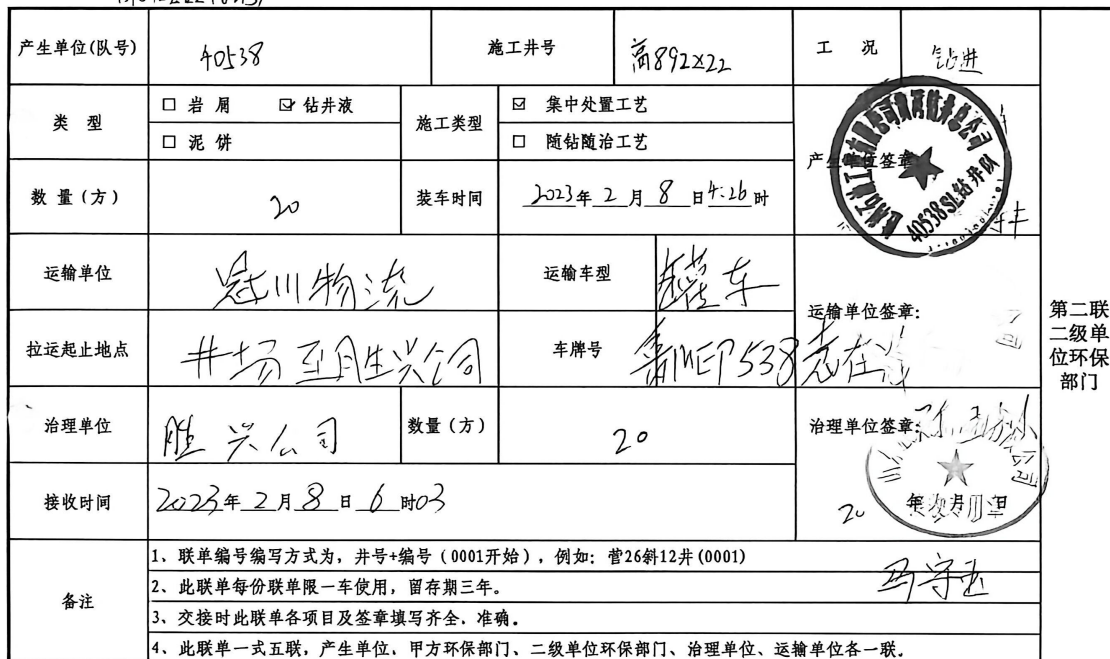 产生单位(队号) 40538 施工井号 高892X22 工 况 钻进
类 型 □ 岩 屑 ☑ 钻井液 施工类型 ☑ 集中处置工艺
□ 泥 饼 □ 随钻随治工艺
产生单位签章
40538SL钻井队
数 量（方） 20 装车时间 2023年 2 月 8 日 4:26 时
运输单位 冠川物流 运输车型 罐车
运输单位签章:
拉运起止地点 井场至胜兴公司 车牌号 538
治理单位 胜兴公司 数量（方） 20 治理单位签章
接收时间 2023年 2 月 8 日 6 时03
20 年 月 日
备注
1、联单编号编写方式为，井号+编号（0001开始），例如：营26斜12井(0001)
2、此联单每份联单限一车使用，留存期三年。
3、交接时此联单各项目及签章填写齐全、准确。
4、此联单一式五联，产生单位、甲方环保部门、二级单位环保部门、治理单位、运输单位各一联。
第二联
二级单
位环保
部门